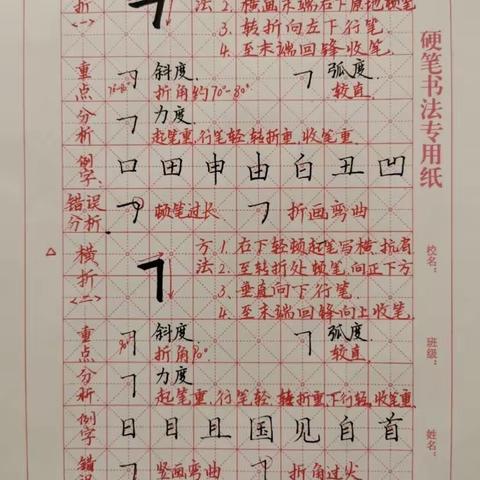 折 法 2. 横画末端右下原地顿笔
<一> 3. 转折向左下行笔
4. 至末端回锋收笔
重点 斜度. 弧度.
70°-80° 折角约70°-80° 较直.
分析 力度.
起笔重,行笔轻,转折重,收笔重.
例字. 口田申由白丑凹
错误分析. 顿笔过长 折画弯曲
横折<二> 方法 1. 右下轻顿起笔写横,抗肩
2. 至转折处顿笔,向正下方
3. 垂直向下行笔.
4. 至末端回锋向上收笔.
重点 斜度. 弧度.
90° 折角90° 较直.
分析. 力度
起笔重,行笔轻,转折重,下行轻,收笔重.
例字 日目且国见自首
错误 竖画弯曲 折角过尖
硬笔书法专用纸
校名:
班级:
姓名: